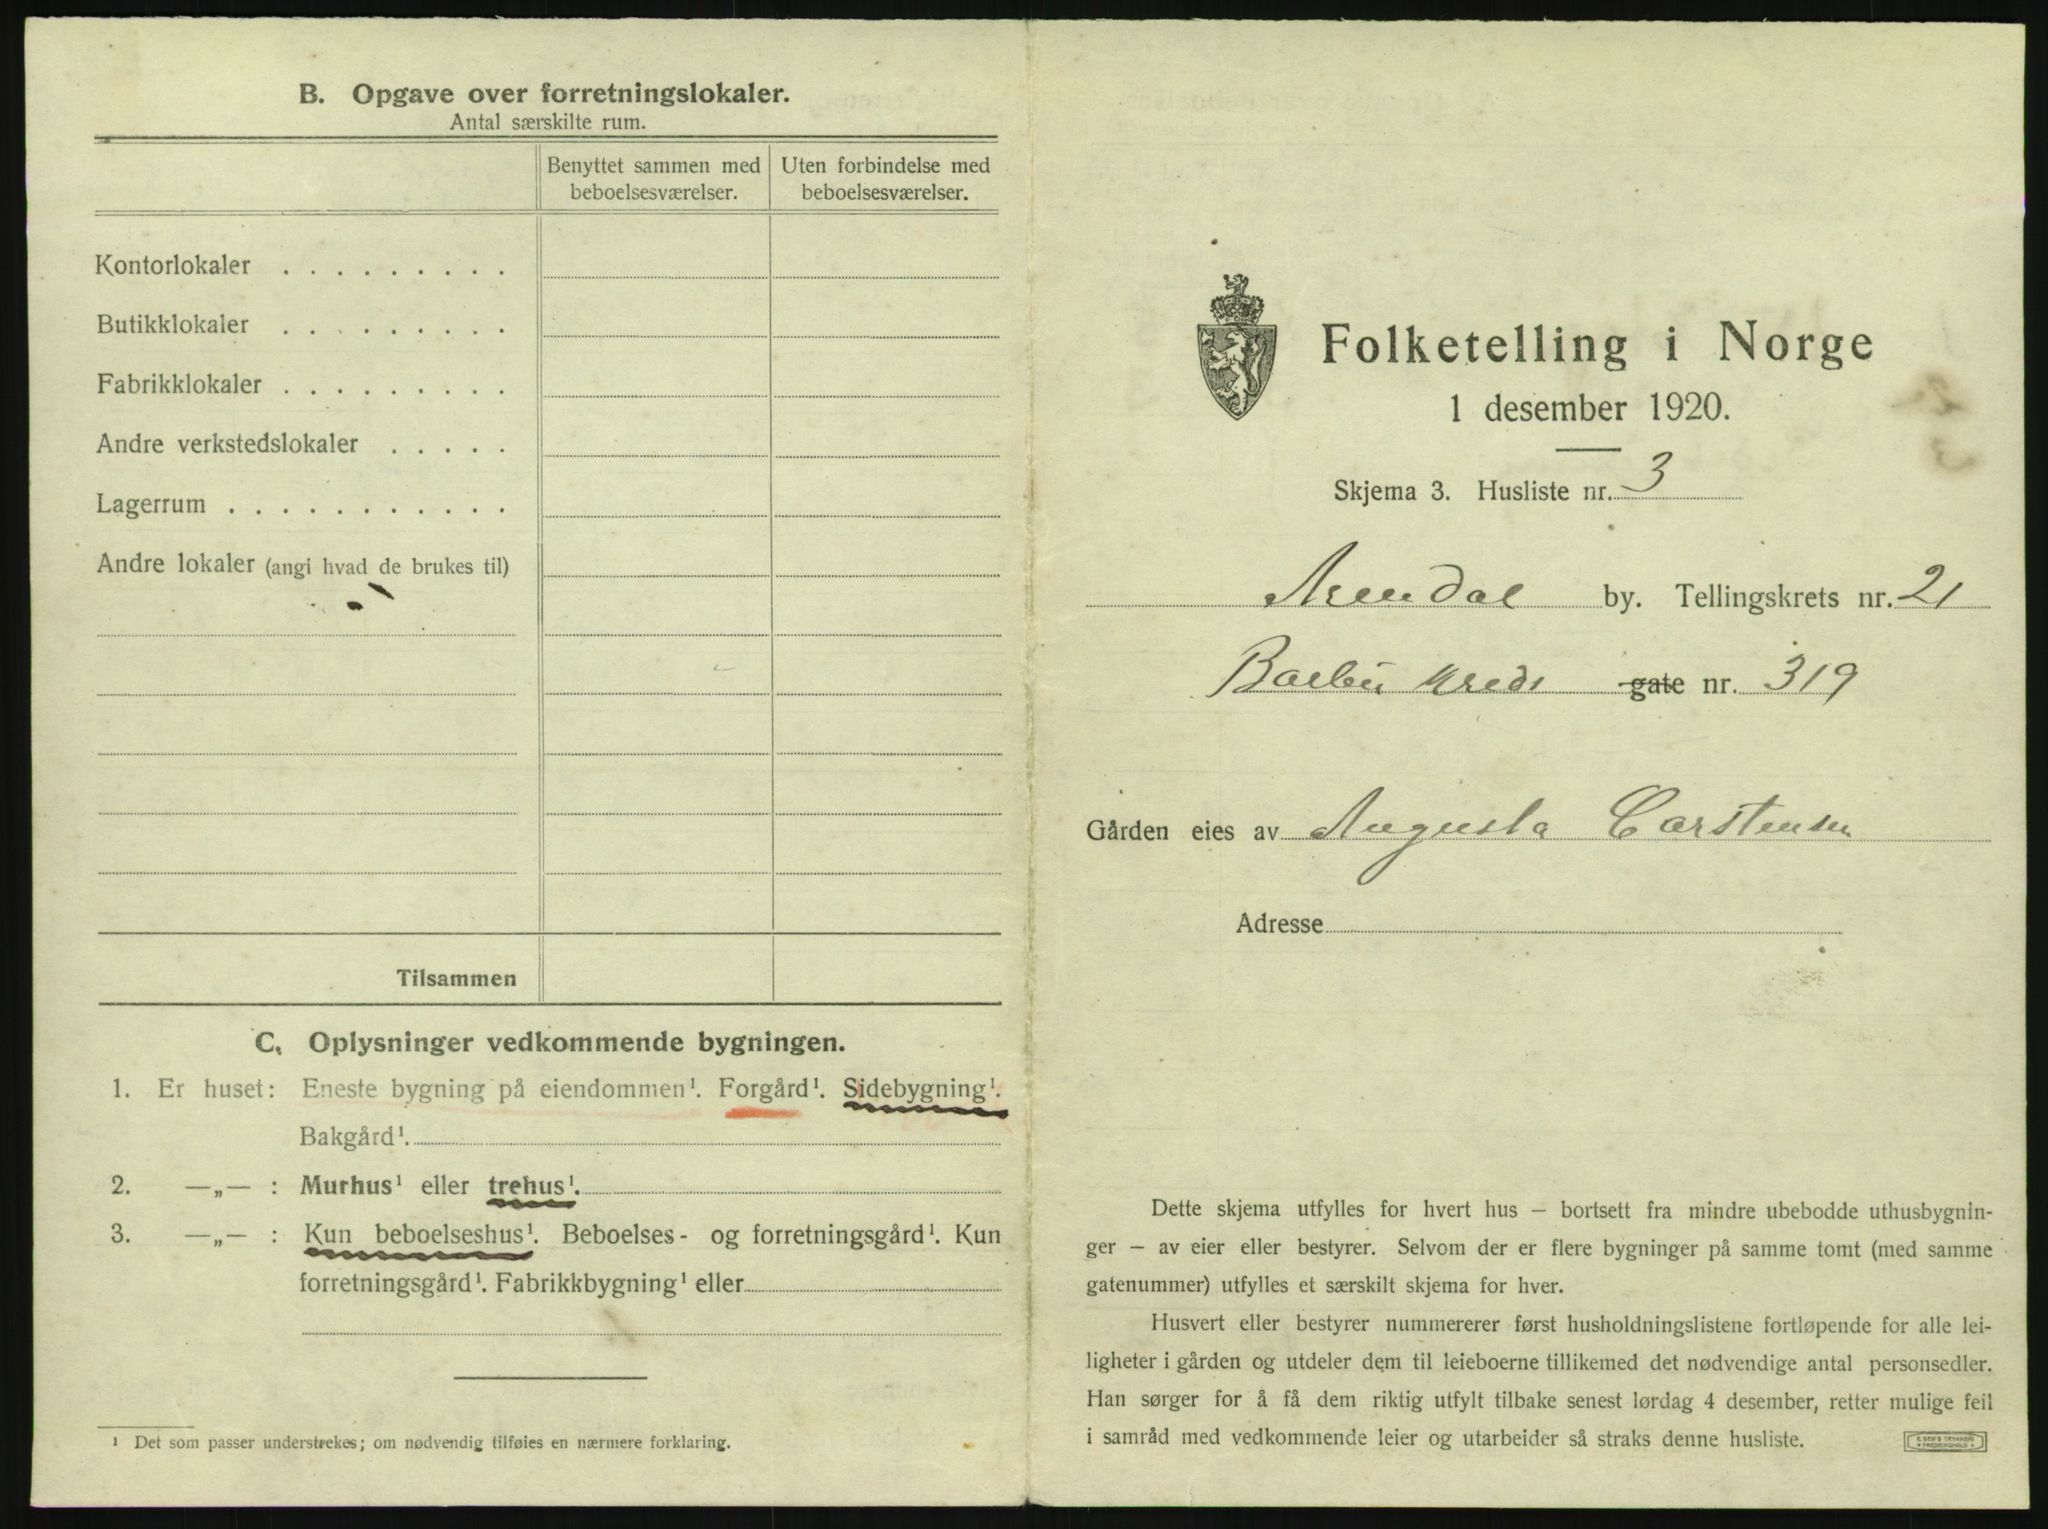 B. Opgave over forretningslokaler.
Antal særskilte rum.
Benyttet sammen med beboelsesværelser.
Uten forbindelse med beboelsesværelser.
Kontorlokaler . . . . . . . . .
Butikklokaler . . . . . . . . .
Fabrikklokaler . . . . . . . . .
Andre verkstedslokaler . . . . .
Lagerrum . . . . . . . . . . .
Andre lokaler (angi hvad de brukes til)
Tilsammen
C. Oplysninger vedkommende bygningen.
1. Er huset: Eneste bygning på eiendommen¹. Forgård¹. Sidebygning¹.
Bakgård¹.
2. —„— : Murhus¹ eller trehus¹.
3. —„— : Kun beboelseshus¹. Beboelses- og forretningsgård¹. Kun
forretningsgård¹. Fabrikkbygning¹ eller
¹ Det som passer understrekes; om nødvendig tilføies en nærmere forklaring.
Folketelling i Norge
1 desember 1920.
Skjema 3. Husliste nr. 3
Arendal by. Tellingskrets nr. 21
Barbu Kreds gate nr. 319
Gården eies av Augusta Carstensen
Adresse
Dette skjema utfylles for hvert hus – bortsett fra mindre ubebodde uthusbygnin-
ger – av eier eller bestyrer. Selvom der er flere bygninger på samme tomt (med samme
gatenummer) utfylles et særskilt skjema for hver.
Husvert eller bestyrer nummererer først husholdningslistene fortløpende for alle lei-
ligheter i gården og utdeler dem til leieboerne tillikemed det nødvendige antal personsedler.
Han sørger for å få dem riktig utfylt tilbake senest lørdag 4 desember, retter mulige feil
i samråd med vedkommende leier og utarbeider så straks denne husliste.